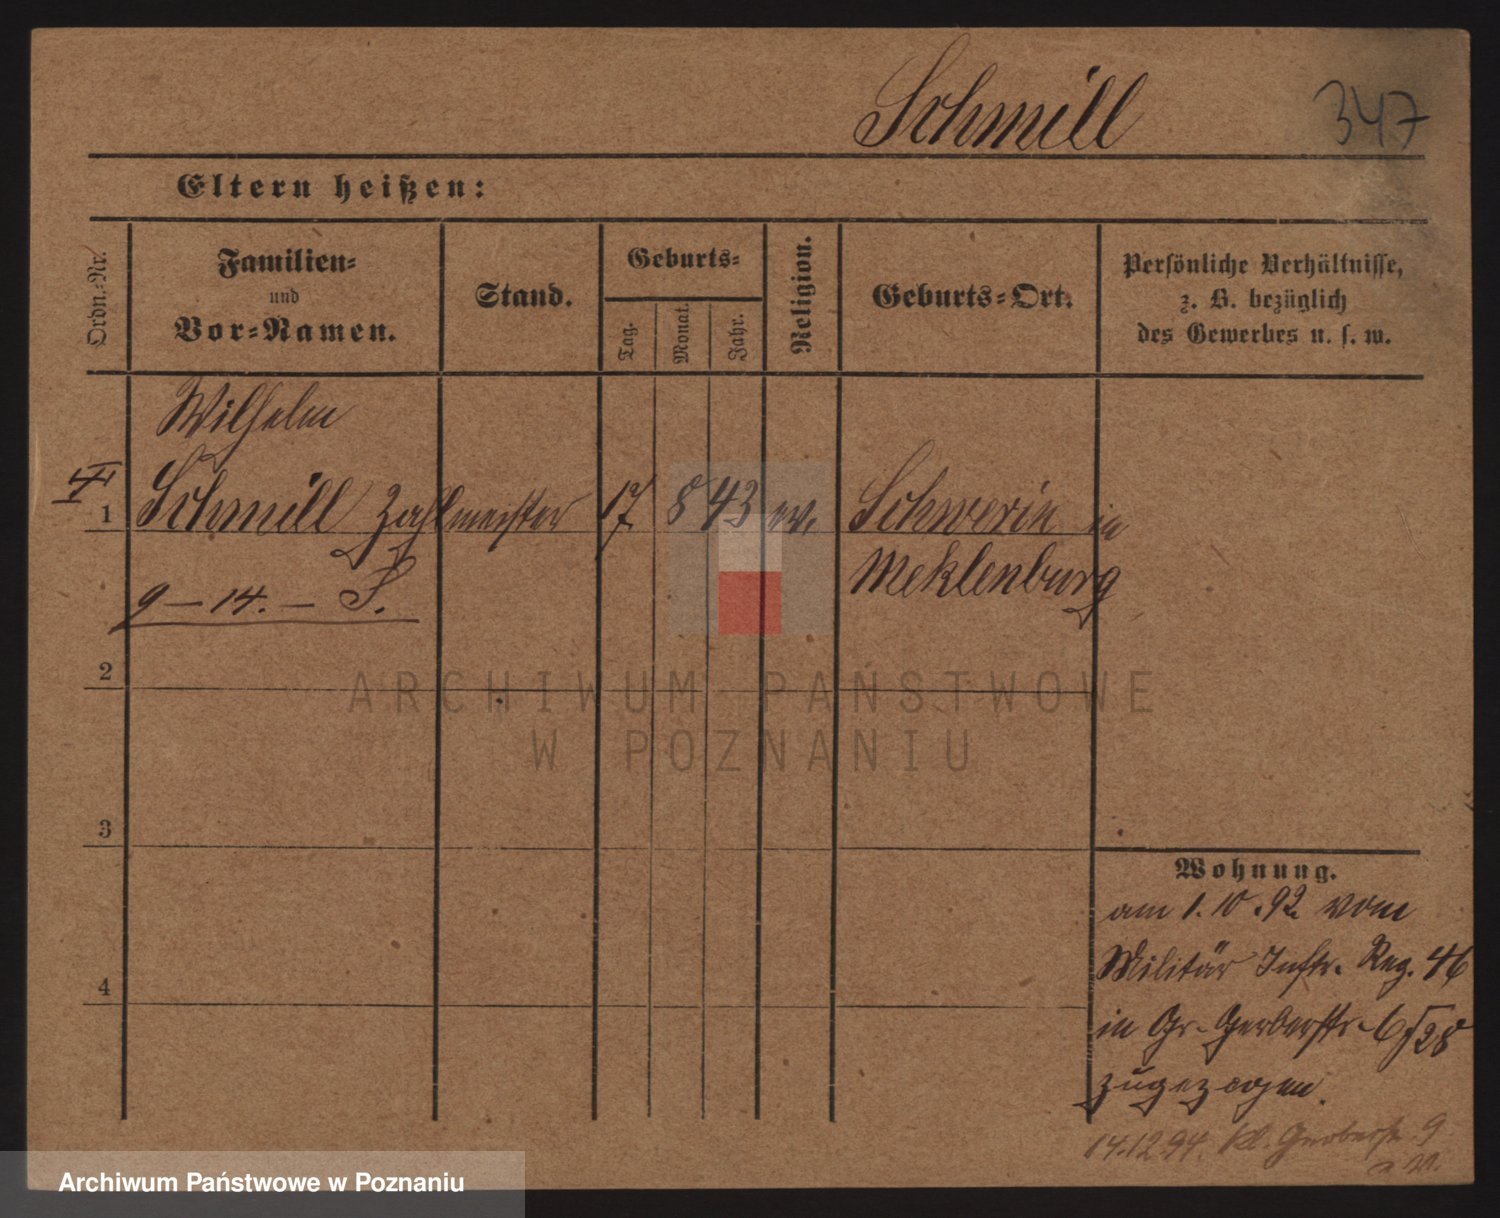 Schmill 347
Eltern heißen:
Ordn.-Nr.
Familien-
und
Vor-Namen.
Stand.
Geburts-
Tag.
Monat.
Jahr.
Religion.
Geburts-Ort.
Persönliche Verhältnisse,
z. B. bezüglich
des Gewerbes u. s. w.
Wilhelm
1 Schmill Zahlmeister 17 8 43 ev. Schwerin in
Meklenburg
9 — 14. — S.
2
3
4
Wohnung.
am 1. 10. 92. vom
Militär Inftr. Reg. 46
in Gr. Gerberstr.
zugezogen.
14.12.94. Kl. Gerberstr. 9
ARCHIWUM PAŃSTWOWE
W POZNANIU
Archiwum Państwowe w Poznaniu